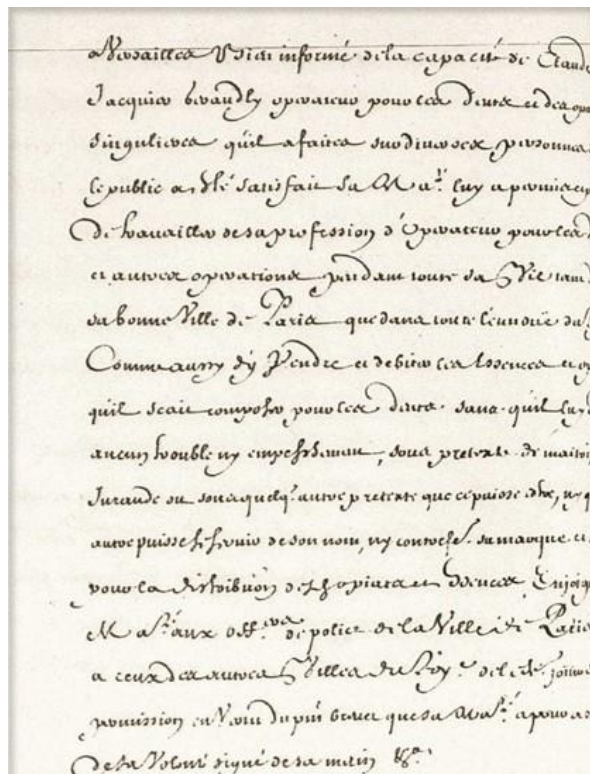 a Versailles Bien informé de la capacité de Claude
Jacquier operateur pour les dents et des ope
singulieres quil a faites sur diverses personnes
le public a esté satisfait Sa Ma.té luy a permis
De travailler de sa profession d'Operateur pour les d
et autres operations pendant toute sa Vie tant d
sa bonne Ville de Paris que dans toute l'etenduë du
Comme aussy d'y Vendre et debiter les Essences et op
quil scait composer pour les dents sans quil luy
aucun trouble ny empeschement, sous pretexte de maitris
Jurande ou sous quelq. autre pretexte que ce puisse estre, ny q
autre puisse se servir de son nom, ny contref.re sa marque et
pour la distribuôn desd. opiats et Essences Enjoig
Ma.té aux off.ers de police de la Ville de Paris
a ceux des autres Villes du Roy.e de le jouir
permission en Vertu du pnt brevet que sa Ma.té a pour as
de sa Volonté signé de sa main &a